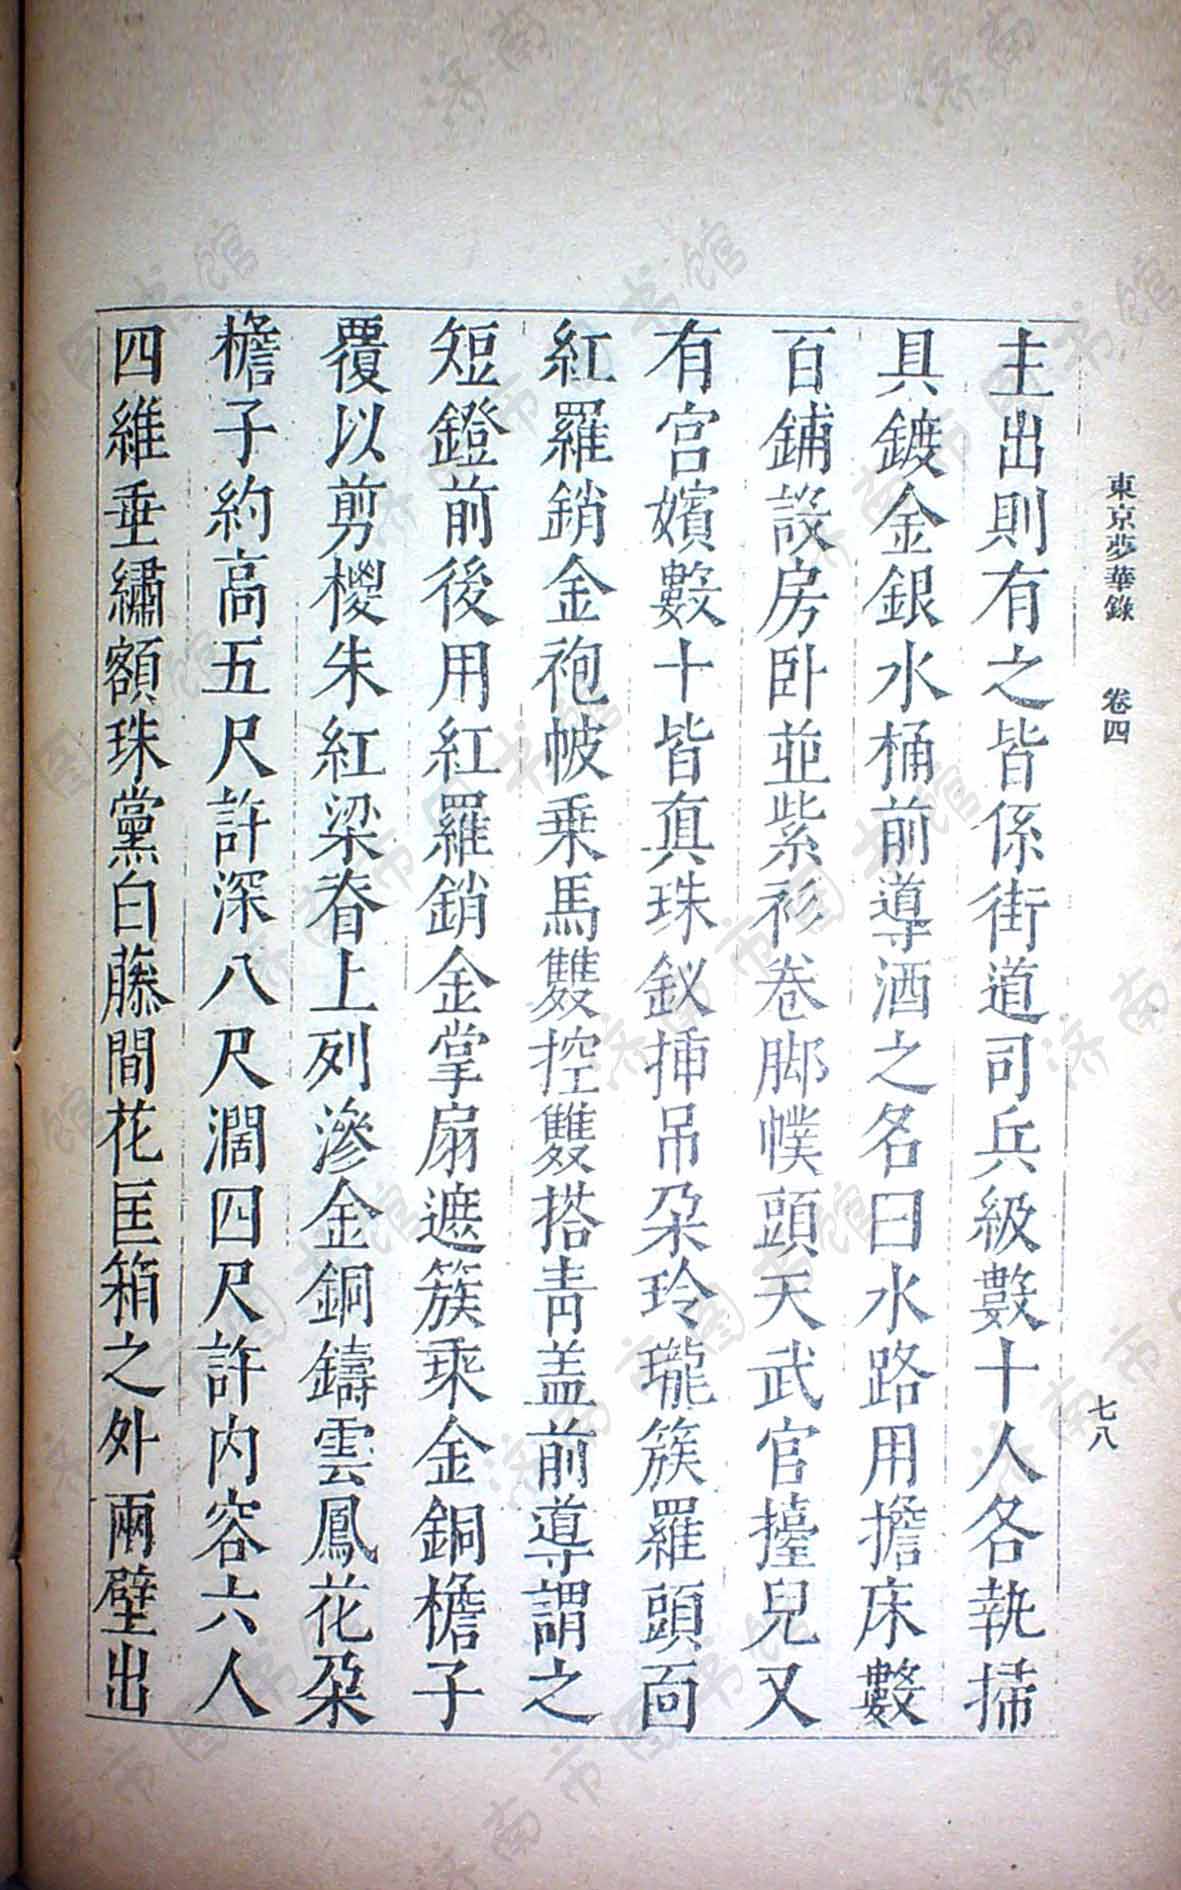 東京夢華錄 卷四 七八
主出則有之皆係街道司兵級數十人各執掃
具鍍金銀水桶前導洒之名曰水路用擔床數
百鋪設房卧並紫衫卷脚幞頭天武官擡兒又
有宫嬪數十皆真珠釵插吊朶玲瓏簇羅頭面
紅羅銷金袍帔乗馬雙控雙搭青盖前導謂之
短鐙前後用紅羅銷金掌扇遮簇乘金銅檐子
覆以剪椶朱紅梁脊上列滲金銅鑄雲鳳花朶
檐子約高五尺許深八尺濶四尺許内容六人
四維垂繡額珠簾白藤間花匡箱之外兩壁出
济南市图书馆